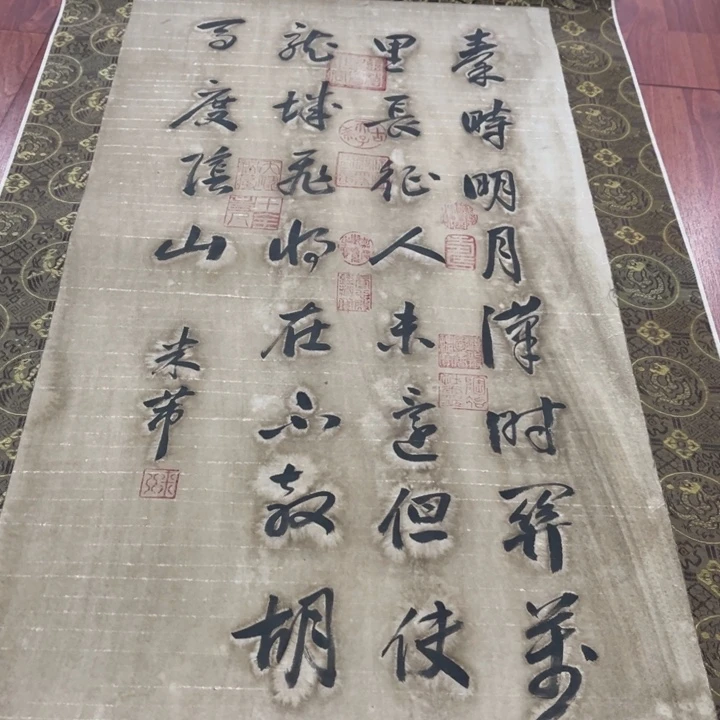 秦時明月漢时關萬
里長征人未還但使
龍城飛将在不教胡
馬度陰山
米芾